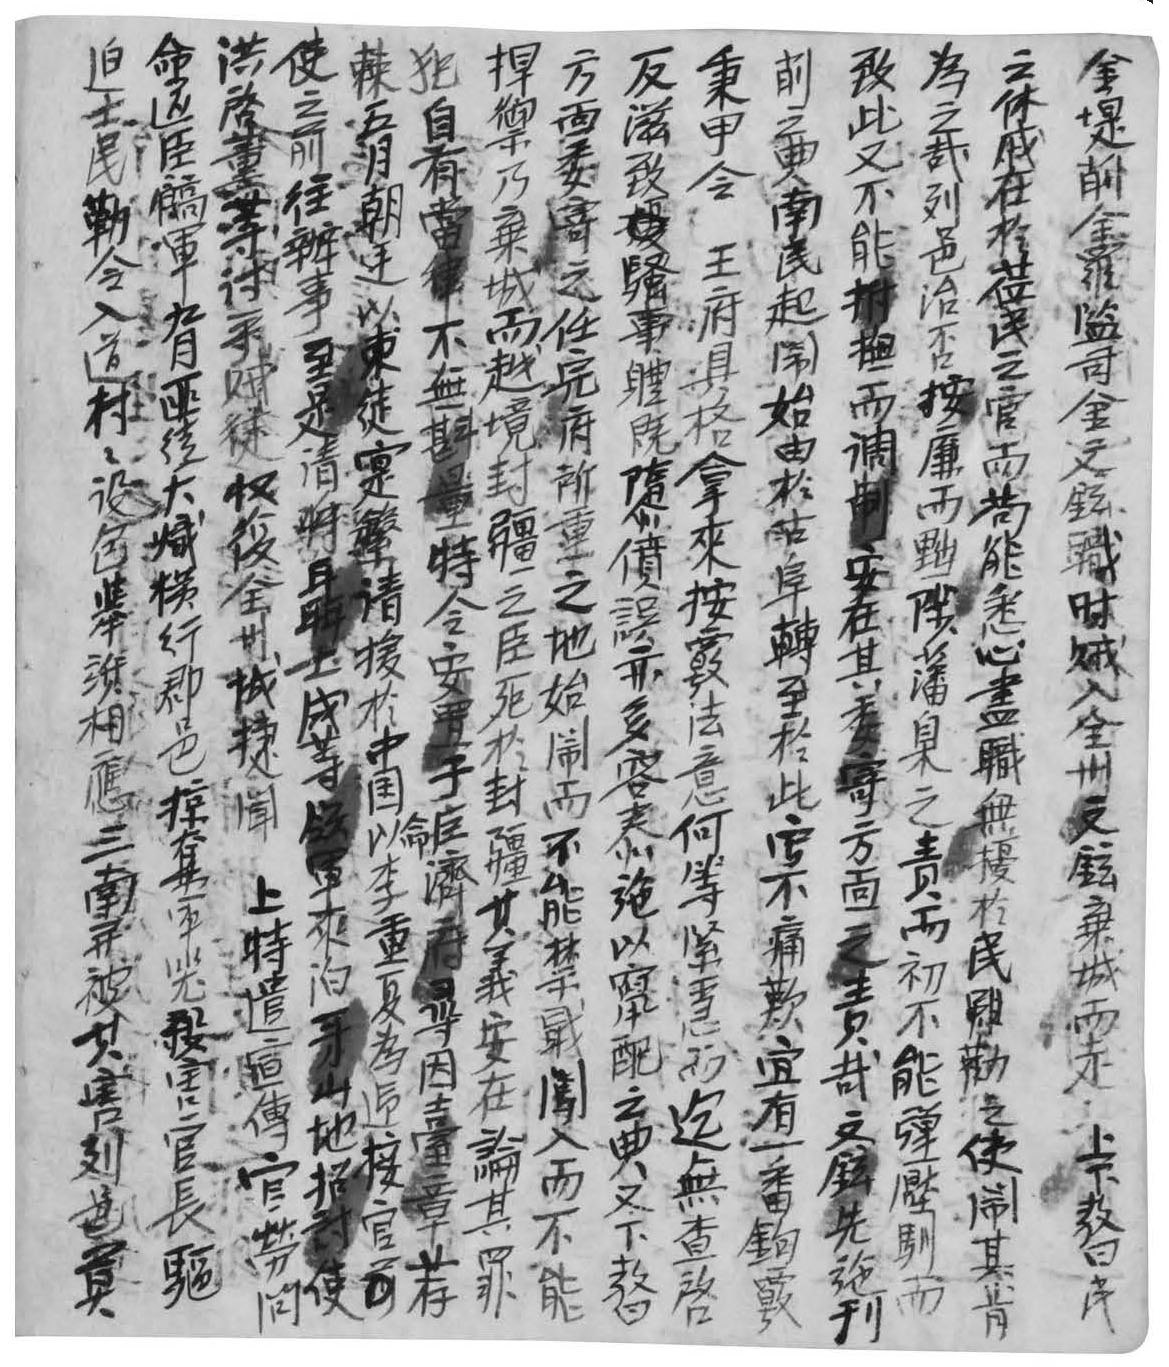 金堤前金羅監司金文鉉職時賊入全州文鉉棄城而走 上下敎曰民
之休戚在於莅民之官而苟能悉心盡職無擾於民雖勸之使鬧其肯
為之哉列邑治否按廉而黜陟藩臬之責而初不能彈壓馴而
致此又不能拊撫而調制安在其委寄方面之責哉文鉉先施刊
削之典南民起鬧始由於古阜轉至於此寧不痛歎宜有一番鉤覈
秉甲令 王府具格拿來按覈法意何等緊重而迄無查啓
反滋致擾騷事體旣隳債誤亦多容夷施以竄配之典又下敎曰
方面委寄之任完府所重之地始鬧而不能禁戢闖入而不能
捍禦乃棄城而越境封疆之臣死於封疆其義安在論其罪
犯自有當律不無斟量特令安置于巨濟府尋因臺章荐
棘五月朝廷以東徒寔繁請援於中国以李重夏為迎接官命
使之前往辦事至是清將聶士成等領軍來泊牙山地招討使
洪啓薰等討平賊徒收復全州城捷聞 上特遣宣傳官勞問
命近臣犒軍九月匪徒大熾橫行郡邑掠奪軍器殺害官長驅
迫士民勒令入道村〻設包舉漸相應三南并被其害列邑員